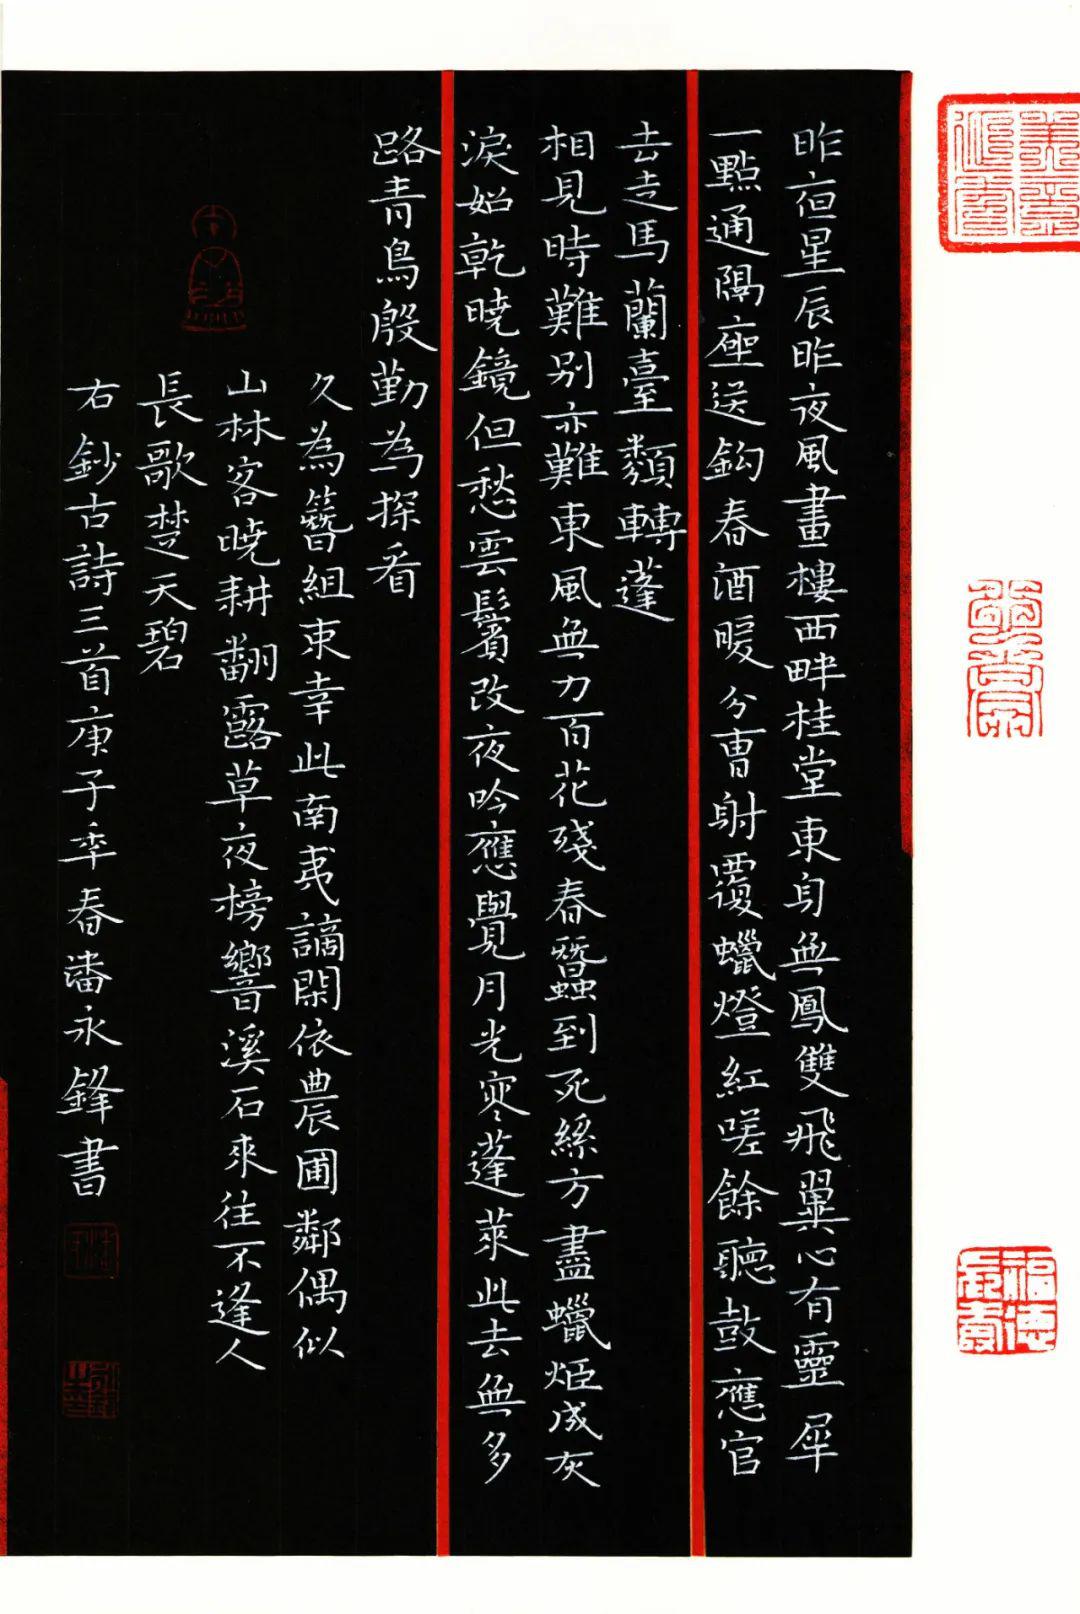 昨夜星辰昨夜風畫樓西畔桂堂東身無鳳雙飛翼心有靈犀
一點通隔座送鈎春酒暖分曹射覆蠟燈紅嗟餘聽鼓應官
去走馬蘭臺類轉蓬
相見時難別亦難東風無力百花殘春蠶到死絲方盡蠟炬成灰
淚始乾曉鏡但愁雲鬢改夜吟應覺月光寒蓬萊此去無多
路青鳥殷勤為探看
久為簪組束幸此南夷謫閑依農圃鄰偶似
山林客曉耕翻露草夜榜響溪石來往不逢人
長歌楚天碧
右鈔古詩三首庚子季春潘永鋒書
福德
長壽